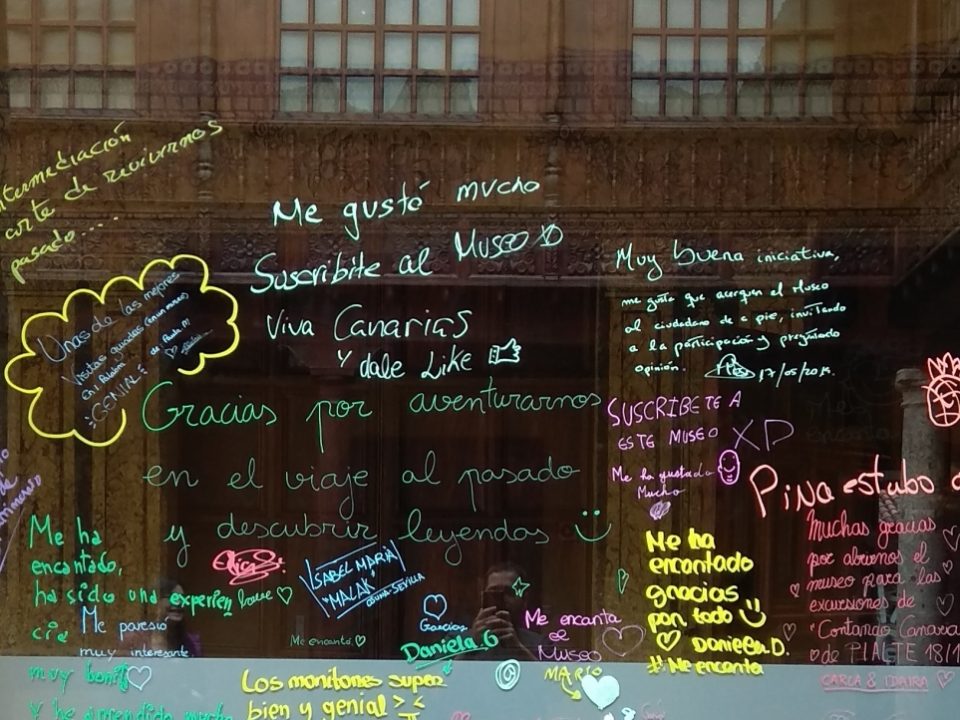 intermediación
arte de revivirnos
pasado...
Me gustó mucho
Suscribite al Museo XD
Viva Canarias
Y dale Like
Muy buena iniciativa,
me gusta que acerquen el Museo
al ciudadano de a pie, invitando
a la participación y preguntando
opinión.
Unas de las mejores
Visitas guiadas
GENIAL
Gracias por aventurarnos
en el viaje al pasado
y descubrir leyendas
SUSCRIBETE A
ESTE MUSEO XD
Me ha gustado
Mucho
Pina estubo
Me ha
encantado,
ha sido una experien
cia
muy bonit
Y he aprendido mucho
Me pareció
muy interesante
ISABEL MARÍA
"MALAK"
OSUNA-SEVILLA
Me encanta
Gracias
Daniela G
Me encanta
el
Museo
MARIO
Me ha
encantado
gracias
por todo
Daniela D.
# Me encanta
Muchas gracias
por abrirnos el
museo para las
excursiones de
"Contando Canaria
de PIALTE 18/1
CARLA & IDAIRA
Los monitores super
bien y genial > <